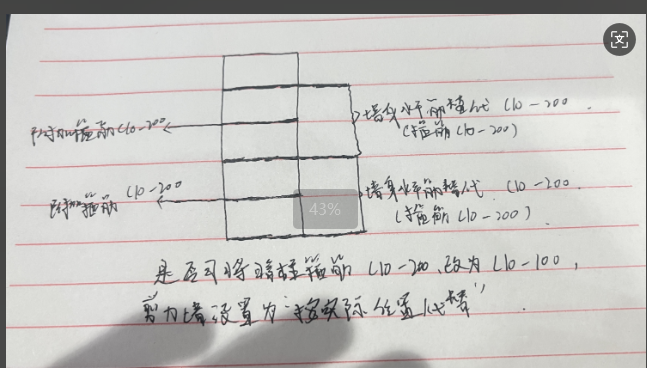 墙身水平筋替代 C10-200.
附加箍筋 C10-200
(箍筋 C10-200)
附加箍筋 C10-200
墙身水平筋替代 C10-200.
(箍筋 C10-200)
43%
是否可将暗柱箍筋 C10-200 改为 C10-100,
剪力墙设置为“按实际位置代替”.